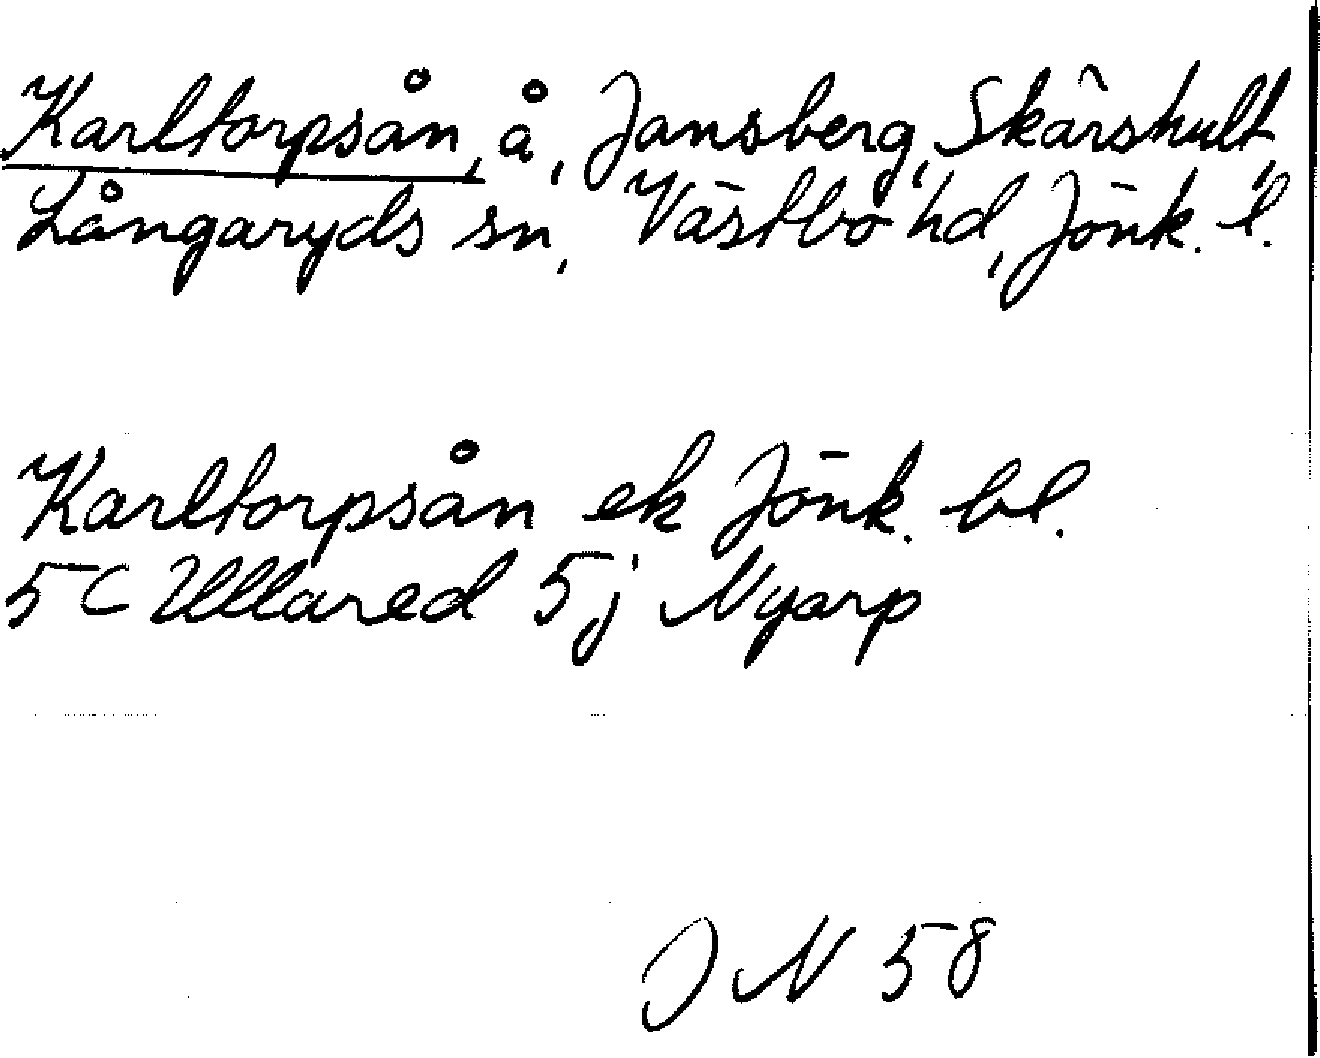 Karltorpsån, å, Jansberg, Skärshult,
Långaryds sn, Västbo hd, Jönk. l.
Karltorpsån ek Jönk. bl.
5C Ullared 5j Nyarp
JN 58